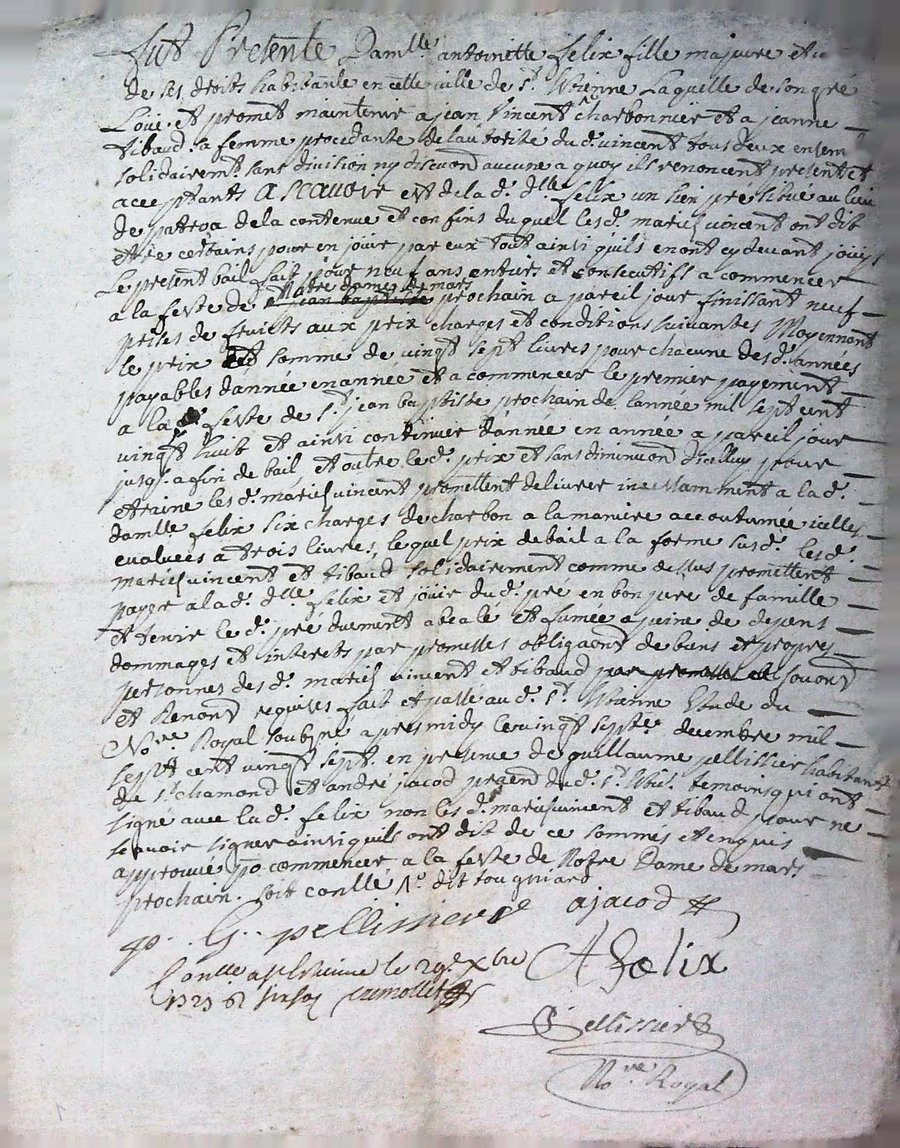 fut Presente Damlle antoinette felix fille majeure et
de ses droits habitante en cette ville de st Etienne Laquelle de son gré
Loue et promet maintenir a jean Vincent charbonnier et a jeanne
tibaud sa femme procedante de lautorité dud. vincent tous deux ensem
solidairemt sans division ny discuon aucune a quoy ils renoncent present et
acceptants Ascavoir est de lad. dlle felix un sien pré situé au lieu
de patroa de la contenue et confins duquel lesd. mariés vincent ont dit
etre certains pour en jouir par eux tout ainsi quils en ont cy devant jouy
Le present bail fait pour neuf ans entiers et consecutifs a commencer
a la feste de notre dame de mars prochain a pareil jour finissant neuf
prises de fruicts aux prix charges et conditions suivantes Moyennant
le prix et somme de vingt sept livres pour chacune desd. années
payables dannée en année et a commencer le premier payement
a la feste de st jean baptiste prochain de lannée mil sept cent
vingt huit et ainsi continuer dannée en année a pareil jour
jusq. a fin de bail et outre led. prix et sans diminuon dicelluy pour
etraine lesd. mariés vincent promettent delivrer incessamment a lad.
damlle felix six charges de charbon a la maniere accoutumée icelles
evaluées a trois livres, lequel prix de bail a la forme susd. lesd.
mariés vincent et tibaud solidairement comme dessus promettent
payer a lad. dlle felix et jouir dud. pré en bon pere de famille
et tenir le d. pré duement abealé et fumée a peine de depens
dommages et interets par promesses obligaons de biens et propres
personnes desd. mariés vincent et tibaud par promesses et soumons
et Renons requises fait et passé aud. st Etienne Etude du
Nore Royal soubné apres midy le vingt septe decembre mil
sept cent vingt sept en presence de guillaume pellissier habitant
de st chamond et andré jacod pratnd dud. st Etie. temoins qui ont
signe avec lad. felix non lesd. mariés vincent et tibaud pour ne
scavoir signer ainsi quils ont dit de ce sommés et enquis
approuvé po commencer a la feste de Notre Dame de mars
prochain. soit conllé
G. pellissier ajacod
Conllé a st Etienne le 29e Xbre
A felix
1727
Pellissier
Nore Royal